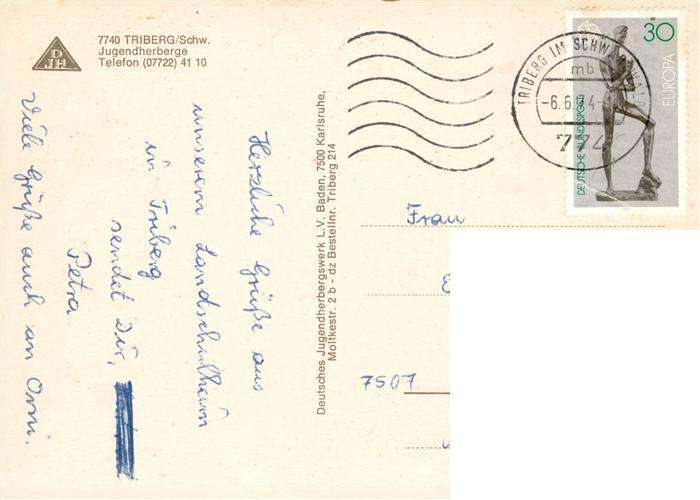 DJH
7740 TRIBERG/Schw.
Jugendherberge
Telefon (07722) 41 10
Herzliche Grüße aus
unserem Landschulheim
in Triberg
sendet Dir,
Petra
Viele Grüße auch an Omi.
Deutsches Jugendherbergswerk L.V. Baden, 7500 Karlsruhe,
Moltkestr. 2 b - dz Bestellnr. Triberg 214
TRIBERG IM SCHW
mb
-6.6.74-
774
30
EUROPA
DEUTSCHE BUNDESPOST
Frau
7507